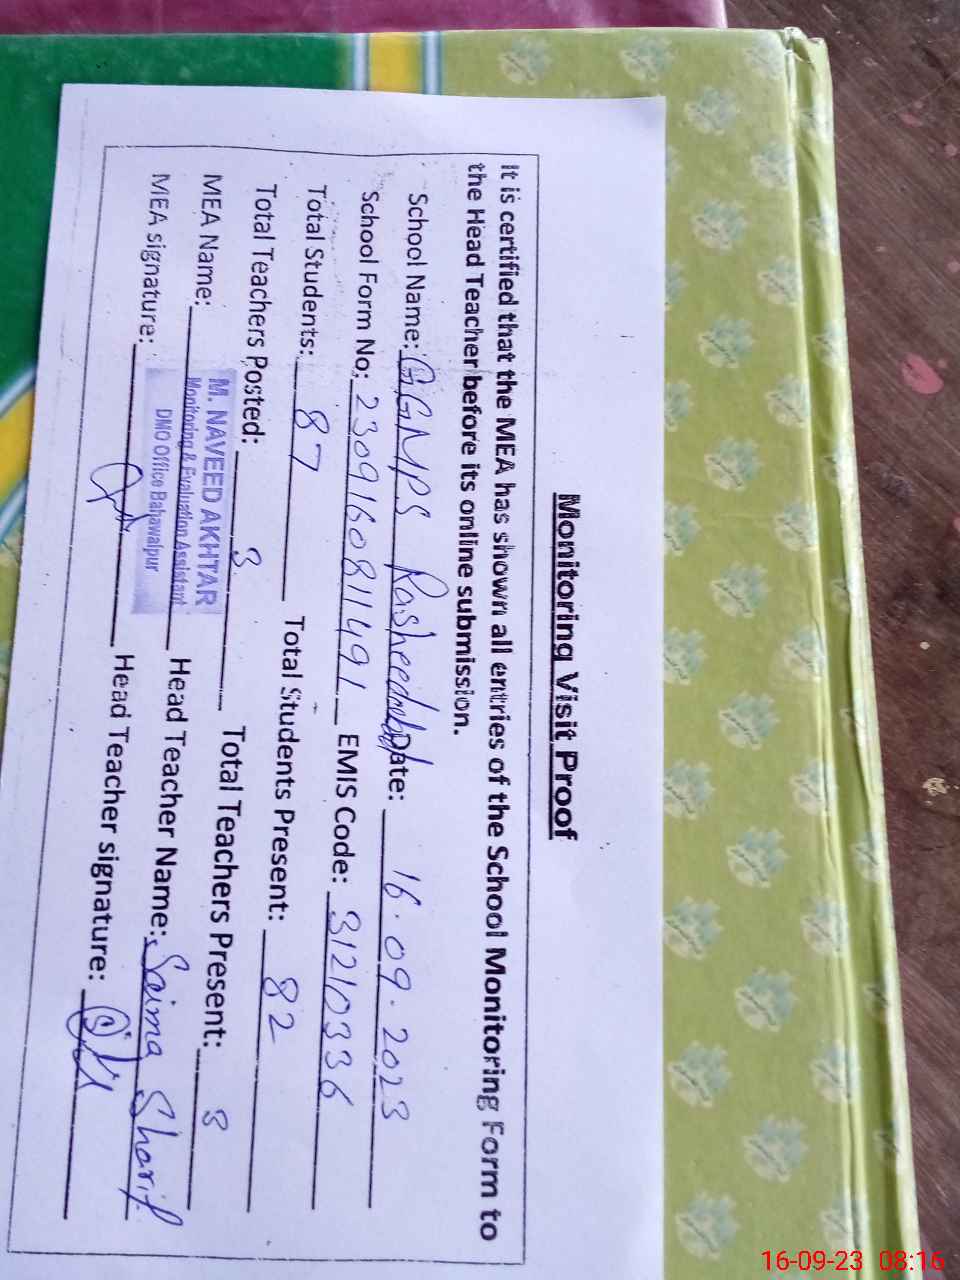 Monitoring Visit Proof
It is certified that the MEA has shown all entries of the School Monitoring Form to
the Head Teacher before its online submission.
School Name: GGMPS Rasheedabad Date: 16.09.2023
School Form No: 2309160811491 EMIS Code: 31210336
Total Students: 87 Total Students Present: 82
Total Teachers Posted: 3 Total Teachers Present: 3
MEA Name: M. NAVEED AKHTAR Head Teacher Name: Saima Sharif
Monitoring & Evaluation Assistant
DMO Office Bahawalpur
MEA signature: Head Teacher signature:
16-09-23 08:16